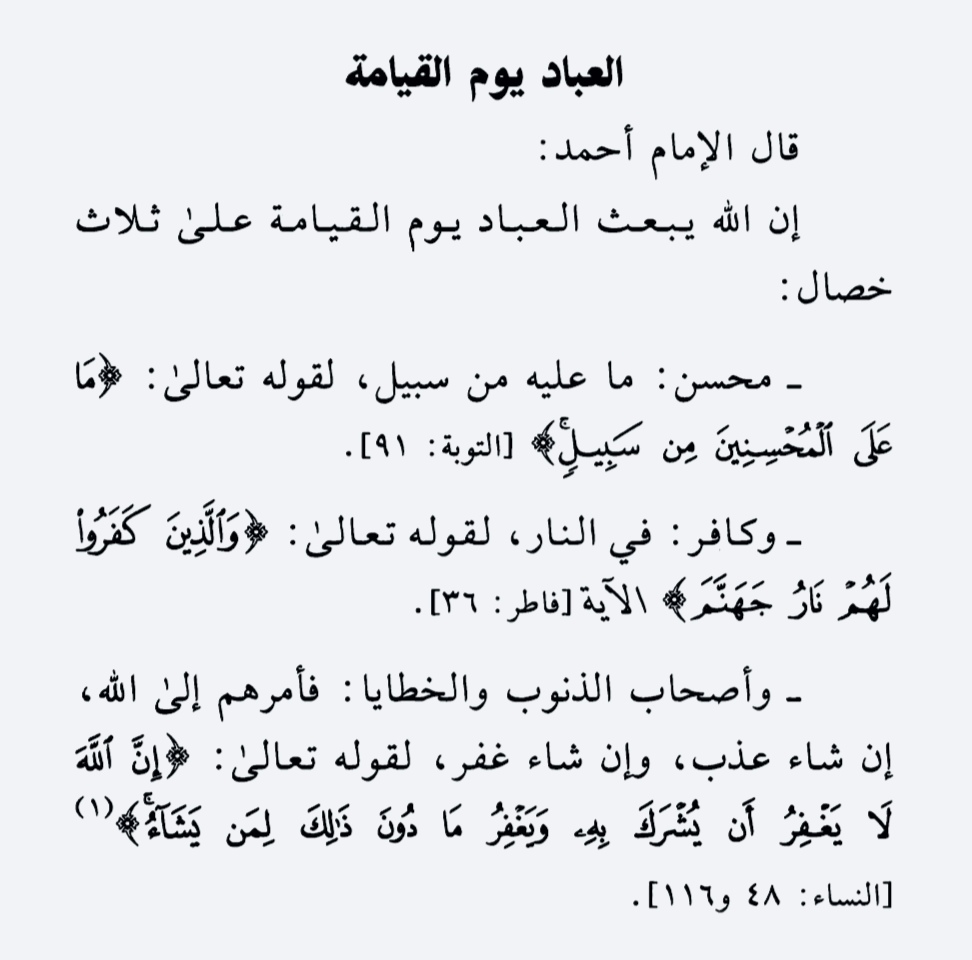 العباد يوم القيامة
قال الإمام أحمد:
إن الله يبعث العباد يوم القيامة علىٰ ثلاث
خصال:
ـ محسن: ما عليه من سبيل، لقوله تعالىٰ: ﴿مَا
عَلَى ٱلْمُحْسِنِينَ مِن سَبِيلٍۚ﴾ [التوبة: ٩١].
ـ وكافر: في النار، لقوله تعالىٰ: ﴿وَٱلَّذِينَ كَفَرُوا۟
لَهُمْ نَارُ جَهَنَّمَ﴾ الآية [فاطر: ٣٦].
ـ وأصحاب الذنوب والخطايا: فأمرهم إلىٰ الله،
إن شاء عذب، وإن شاء غفر، لقوله تعالىٰ: ﴿إِنَّ ٱللَّهَ
لَا يَغْفِرُ أَن يُشْرَكَ بِهِۦ وَيَغْفِرُ مَا دُونَ ذَٰلِكَ لِمَن يَشَآءُۚ﴾(١)
[النساء: ٤٨ و١١٦].